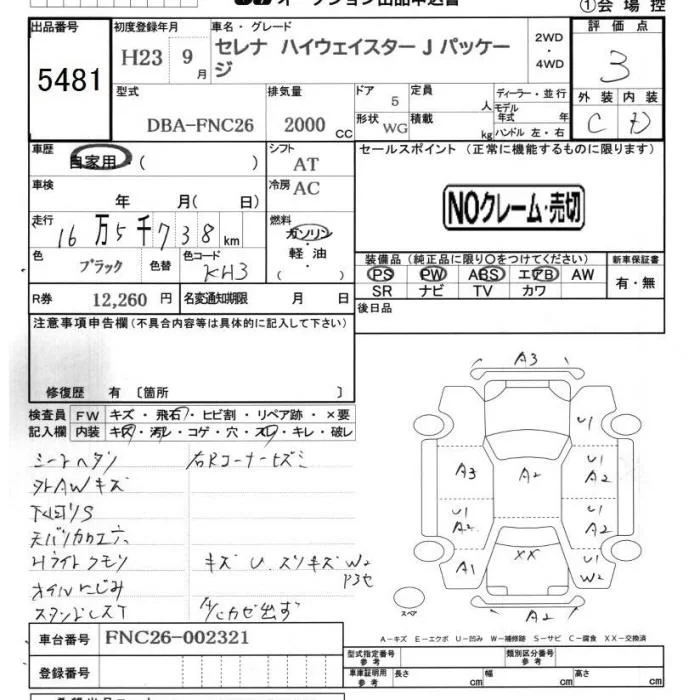 オークション出品申込書
①会 場 控
出品番号
5481
初度登録年月
H23 9月
車名・グレード
セレナ ハイウェイスター J パッケー
ジ
2WD
・
4WD
評 価 点
3
型式
DBA-FNC26
排気量
2000 CC
ドア 5
定員 人
ディーラー・並行
モデル
年式 年
形状 WG
積載 kg
ハンドル 左・右
外 装 内 装
C D
車歴
自家用・( )
シフト
AT
セールスポイント (正常に機能するものに限ります)
NOクレーム・売切
車検
年 月( 日)
冷房
AC
走行
16万5千738km
燃料
ガソリン
・
軽 油
( )
色
ブラック
色替
色コード
KH3
装備品 (純正品に限り○をつけてください)
新車保証書
PS PW ABS エアB AW
SR ナビ TV カワ
有・無
R券 12,260 円
名変通知期限 月 日
後日品
注意事項申告欄 (不具合内容等は具体的に記入して下さい)
修復歴 有 〔箇所 〕
検査員 FW キズ・飛石・ヒビ割・リペア跡・×要
記入欄 内装 キズ・汚レ・コゲ・穴・スレ・キレ・破レ
外AWキズ
下回りS
オイルにじみ
A3
U1
A3
A2
U1
A2
U1
A2
U1
A2
A1
XX
U1
W2
A2
スペア
A－キズ E－エクボ U－凹み W－補修跡 S－サビ C－腐食 XX－交換済
車台番号 FNC26-002321
登録番号
型式指定番号
参 考
類別区分番号
参 考
車庫証明用
参 考
長さ cm
幅 cm
高さ cm